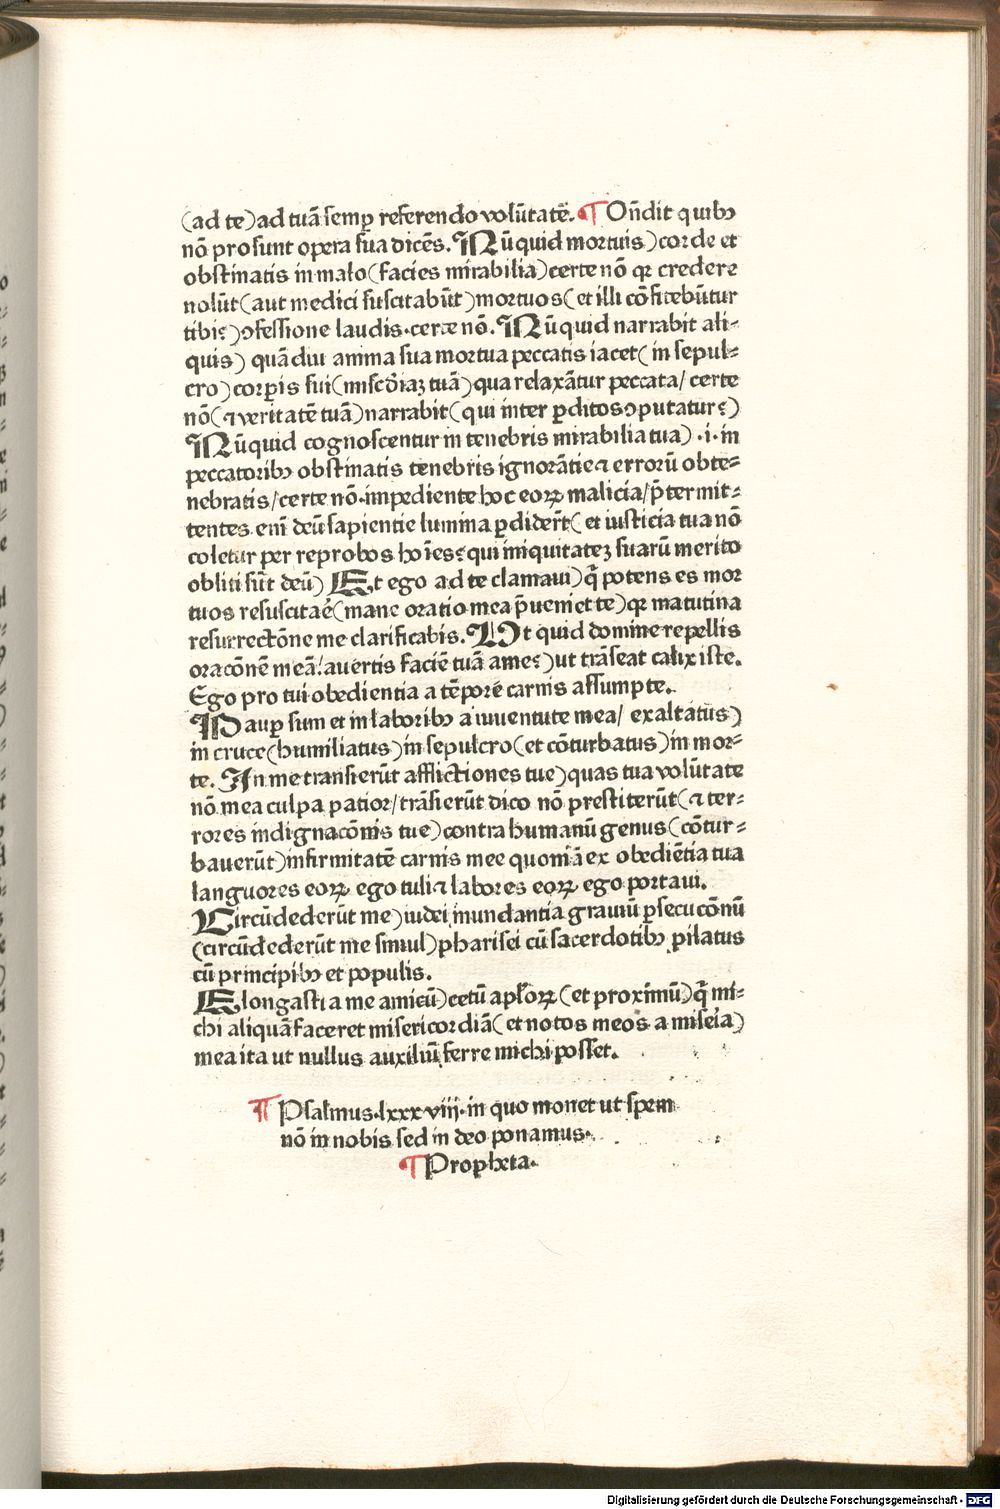 (ad te)ad tuã semꝑ referendo volũtatẽ. ¶ Oñdit quibꝰ
nõ prosunt opera sua dicẽs. Nũquid mortuis)corde et
obstinatis in malo(facies mirabilia)certe nõ qꝛ credere
nolũt(aut medici suscitabũt)mortuos(et illi cõfitebũtur
tibi?)ↄfessione laudis.certe nõ. Nũquid narrabit ali-
quis) quãdiu anima sua mortua peccatis iacet(in sepul-
cro)corꝑis sui(miscõiaꝫ tuã)qua relaxãtur peccata/ certe
nõ(⁊ veritatẽ tuã)narrabit(qui inter ꝑditos ↄputatur?)
Nũquid cognoscentur in tenebris mirabilia tua) .i. in
peccatoribꝰ obstinatis tenebris ignorãtie ⁊ errorũ obte-
nebratis/certe nõ.impediente hoc eoꝝ malicia/p̃termit-
tentes eni deũ sapientie lumina ꝑdider̃t(et iusticia tua nõ
coletur per reprobos hoĩes?qui iniquitateꝫ suarũ merito
obliti sũt deũ) Et ego ad te clamaui)q̃ potens es mor
tuos resuscitaẽ(mane oratio mea p̃ueniet te)qꝛ matutina
resurrectõne me clarificabis. Ut quid domine repellis
oracõnẽ meã:auertis faciẽ tuã ame?)ut trãseat calix iste.
Ego pro tui obedientia a tẽpore carnis assumpte.
Pauꝑ sum et in laboribꝰ a iuuentute mea/ exaltatus)
in cruce(humiliatus)in sepulcro(et cõturbatus)in mor-
te. In me transierũt afflictiones tue)quas tua volũtate
nõ mea culpa patior/trãsierũt dico nõ prestiterũt(⁊ ter-
rores indignacõnis tue)contra humanũ genus(cõtur-
bauerũt)infirmitatẽ carnis mee quoniã ex obediẽtia tua
languores eoꝝ ego tuli ⁊ labores eoꝝ ego portaui.
Circũdederũt me)iudei inundantia grauiũ ꝑsecucõnũ
(circũdederũt me simul)pharisei cũ sacerdotibꝰ pilatus
cũ principibꝰ et populis.
Elongasti a me amicũ)cetũ apl̃oꝝ(et proximũ)q̃ mi-
chi aliquã faceret misericordiã(et notos meos a mis̃eia)
mea ita ut nullus auxiliũ ferre michi posset.
¶ Psalmus.lxxxviij.in quo monet ut spem
nõ in nobis sed in deo ponamus.
¶ Propheta.
Digitalisierung gefördert durch die Deutsche Forschungsgemeinschaft - DFG